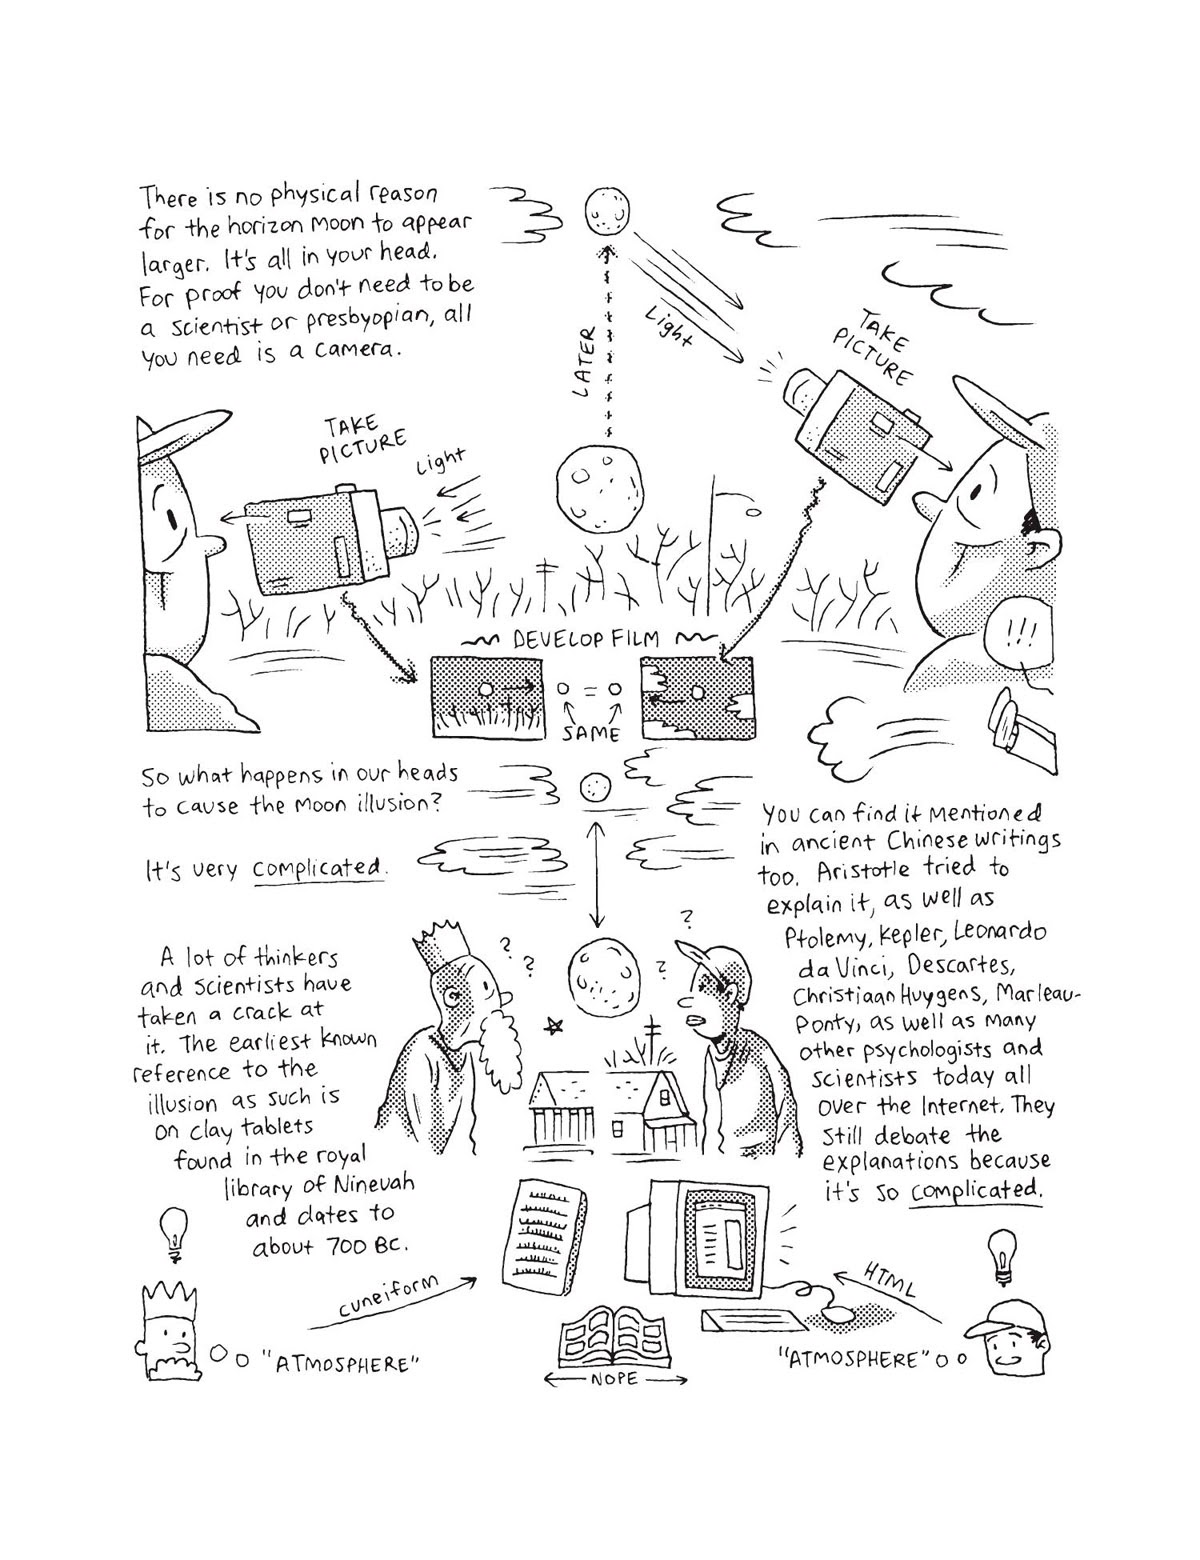 There is no physical reason
for the horizon Moon to appear
larger. It's all in your head.
For proof you don't need to be
a scientist or presbyopian, all
you need is a camera.
LATER
Light
TAKE
PICTURE
TAKE
PICTURE
Light
DEVELOP FILM
=
SAME
!!!
So what happens in our heads
to cause the Moon illusion?
It's very complicated.
A lot of thinkers
and scientists have
taken a crack at
it. The earliest known
reference to the
illusion as such is
on clay tablets
found in the royal
library of Ninevah
and dates to
about 700 BC.
?
?
?
?
You can find it mentioned
in ancient Chinese writings
too. Aristotle tried to
explain it, as well as
Ptolemy, Kepler, Leonardo
da Vinci, Descartes,
Christiaan Huygens, Marleau-
Ponty, as well as many
other psychologists and
scientists today all
over the Internet. They
still debate the
explanations because
it's so complicated.
cuneiform
HTML
"ATMOSPHERE"
"ATMOSPHERE"
NOPE